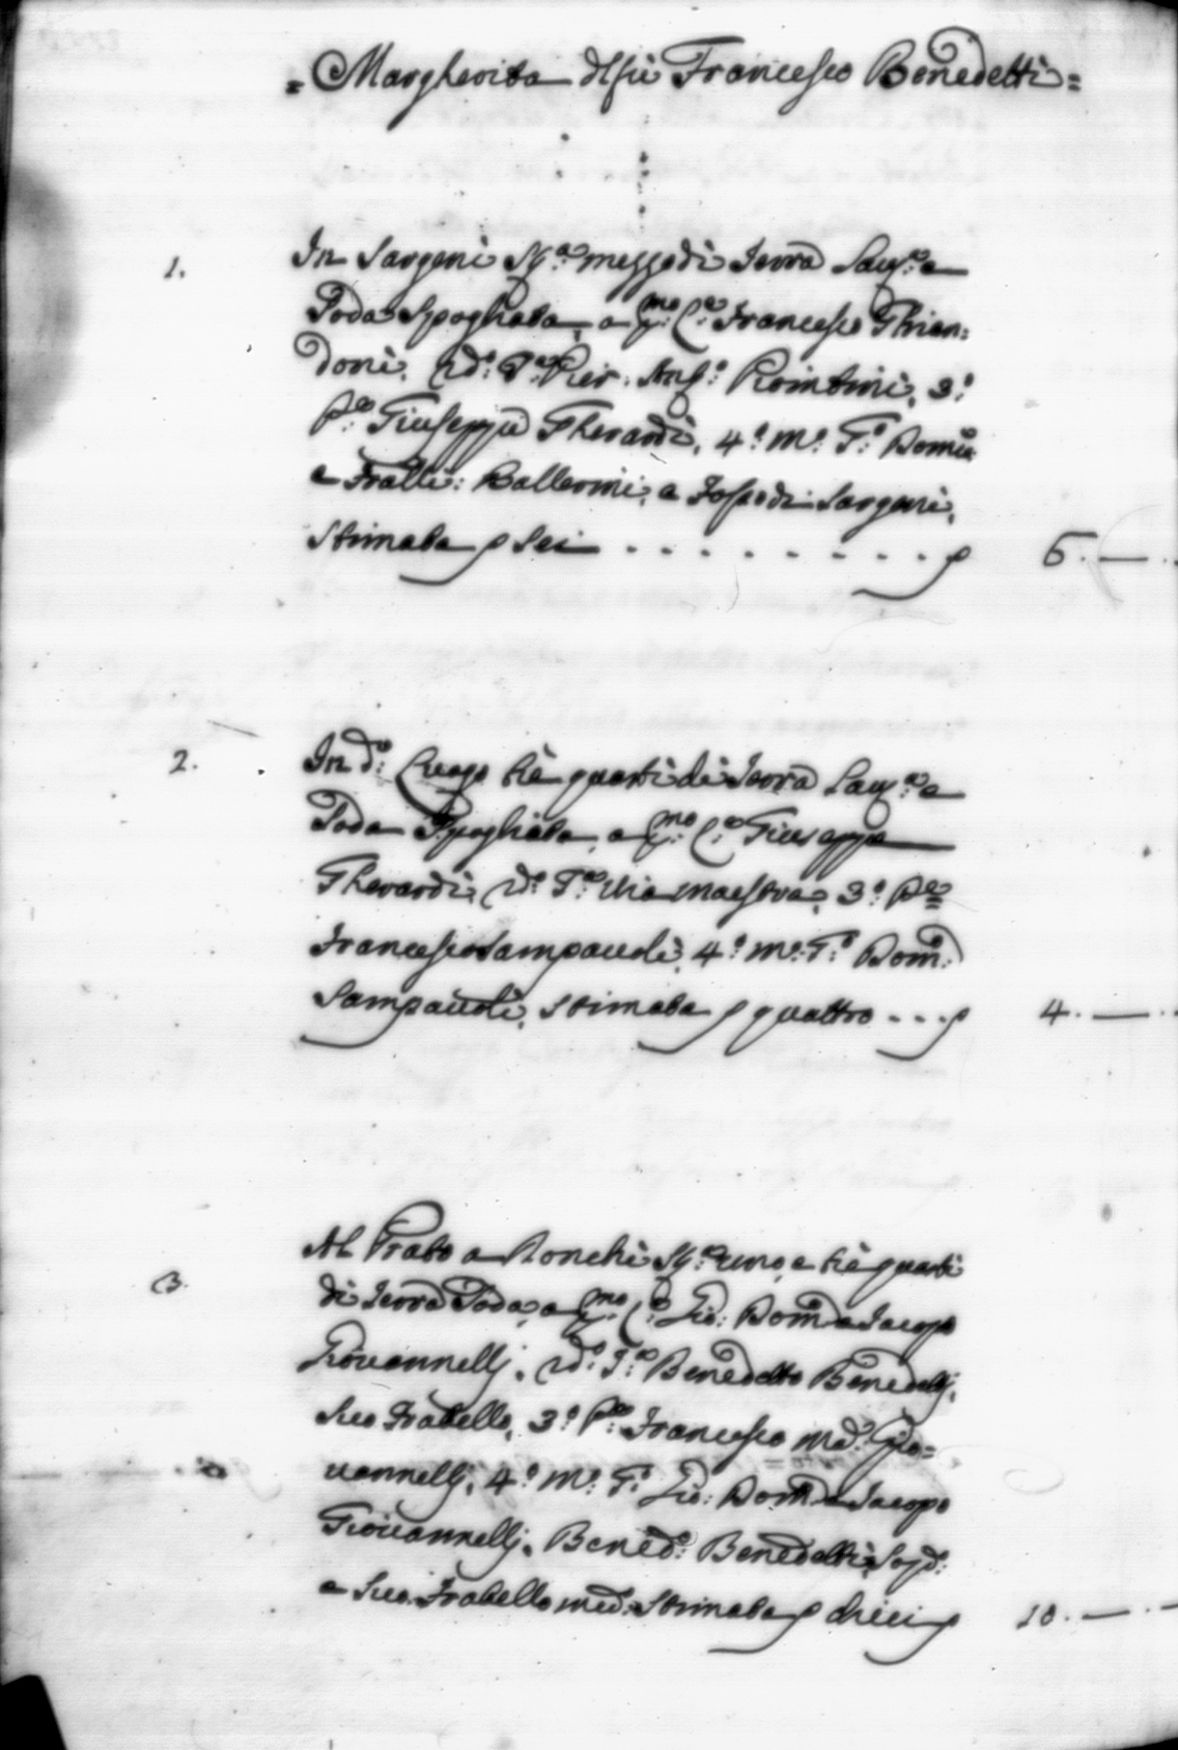 = Margherita dl fù Francesco Benedetti =
1. In Sargeni Sg.ª mezzo di Terra Lau.ª e
Soda Spogliata, a p.mo C.º Francesco Ghian:
doni, 2d.º T.ª Pier. Ant.º Pointini, 3.º
P.º Giuseppe Gherardi, 4.º M.º T.º Domco
e Fratli: Ballerini, e Fosso di Sargeni,
Stimata p Sei - - - - - - - - - p 6. —
2. In d.º Luogo trè quarti di Terra Lau.ª e
Soda Spogliata, a p.mo C.º Giuseppe
Gherardi, 2d.º T.ª Via Maestra, 3.º P.º
Francesco Sampaoli, 4.º M.º T.º Dom.º
Sampaoli, Stimata p quattro - - - p 4. —
3. Al Prato a Ronchi Sg.ª uno, e trè quarti
di Terra Soda, a p.mo C.º Gio: Dom.º e Jacopo
Giovannellj, 2d.º T.º Benedetto Benedettj,
Suo Fratello, 3.º P.º Francesco Md.º Gio=
vannellj, 4.º M.º T.º Gio: Dom.º e Jacopo
Giovannellj, Bened.º Benedetti Sopd.º
e Suo Fratello med.º Stimata p dieci p 10. —